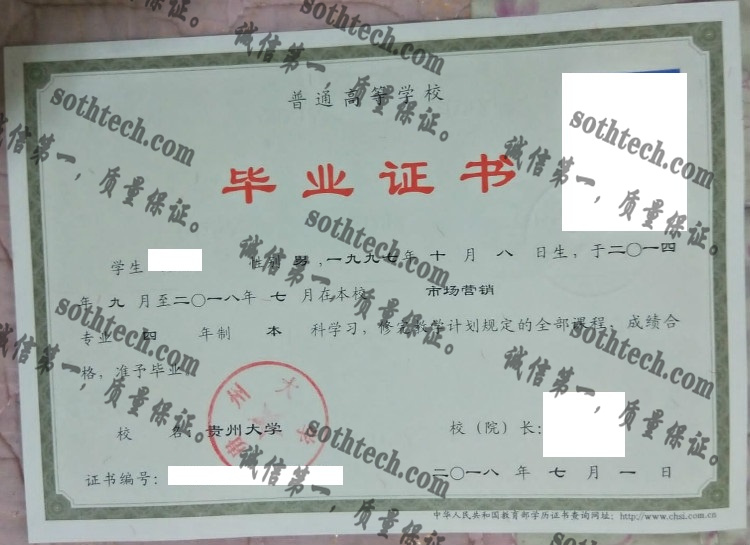 普通高等学校
毕业证书
学生 性别 男,一九九七年 十 月 八 日生,于二〇一四
年 九 月至二〇一八年 七 月在本校 市场营销
专业 四 年制 本 科学习,修完教学计划规定的全部课程,成绩合
格,准予毕业。
校 名: 贵州大学
校(院)长:
证书编号:
二〇一八 年 七 月 一 日
中华人民共和国教育部学历证书查询网址: http://www.chsi.com.cn
贵州大学
sothtech.com
诚信第一,质量保证。
sothtech.com
诚信第一,质量保证。
sothtech.com
诚信第一,质量保证。
sothtech.com
诚信第一,质量保证。
sothtech.com
诚信第一,质量保证。
sothtech.com
诚信第一,质量保证。
sothtech.com
诚信第一,质量保证。